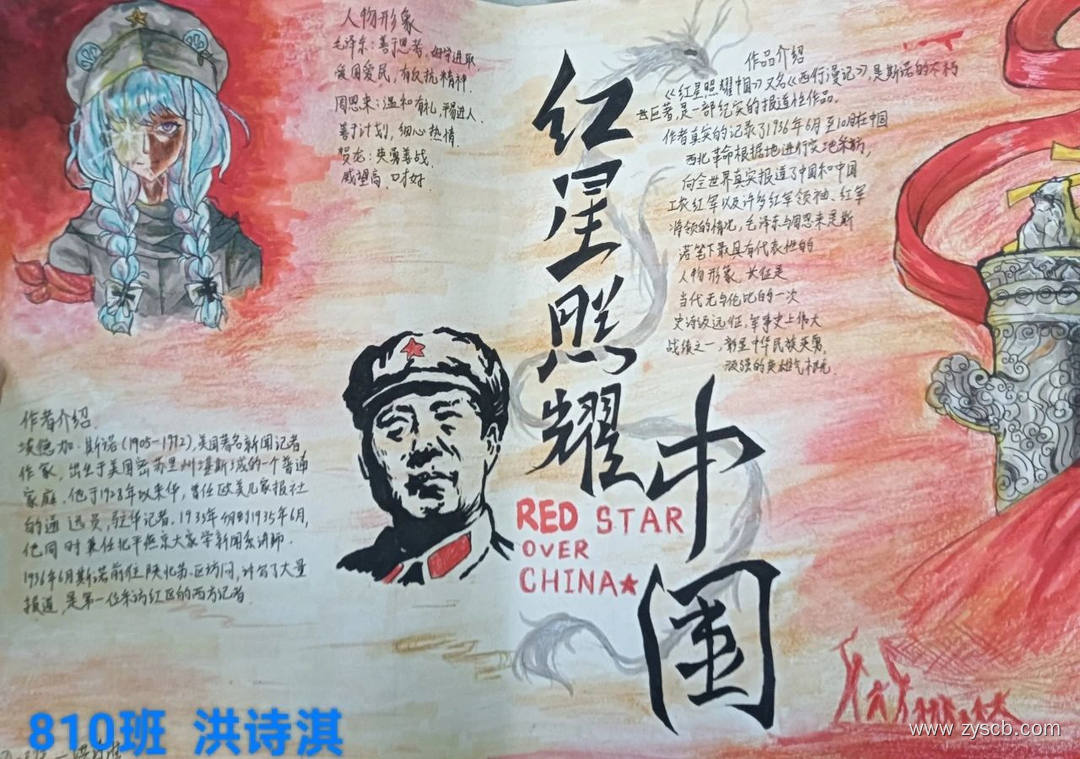 人物形象
毛泽东:善于思考,
爱国爱民,有反抗精神.
周恩来:温和有礼,平易近人.
善于计划,细心热情.
贺龙:英勇善战,
威望高,口才好.
红星照耀中国
RED STAR
OVER
CHINA★
作品介绍
《红星照耀中国》又名《西行漫记》,是斯诺的不朽
世巨著,是一部纪实的报道性作品.
作者真实的记录了1936年6月至10月在中国
西北革命根据地进行实地采访,
向全世界真实报道了中国和中国
工农红军以及许多红军领袖、红军
将领的情况,毛泽东与周恩来是斯
诺笔下最具有代表性的
人物形象.长征是
当代无与伦比的一次
史诗级远征,军事史上伟大
战绩之一,彰显中华民族英勇
顽强的英雄气概
作者介绍
埃德加·斯诺(1905-1972),美国著名新闻记者,
作家,出生于美国密苏里州堪斯城的一个普通
家庭.他于1928年以来华,曾任欧美几家报社
的通讯员,驻华记者.1933年4月到1935年6月,
他同时兼任北平燕京大学新闻系讲师.
1936年6月斯诺前往陕北苏区访问,计写了大量
报道,是第一位采访红区的西方记者.
810班 洪诗淇
www.zyscb.com